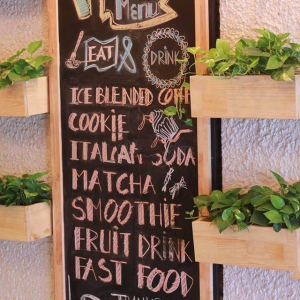 Menus
EAT DRINK
ICE BLENDED
COOKIE
ITALIAN SODA
MATCHA
SMOOTHIE
FRUIT DRINK
FAST FOOD